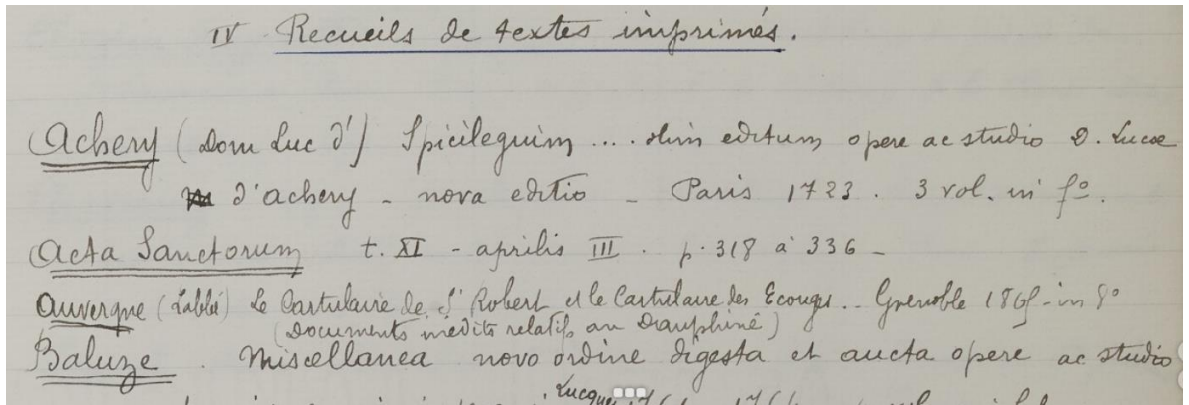 IV Recueils de textes imprimés.
Achery (Dom Luc d') Spicilegium .... olim editum opere ac studio D. Lucae
d'achery - nova editio - Paris 1723. 3 vol. in fº.
Acta Sanctorum t. XI - aprilis III. p. 318 à 336 -
Auvergne (L'abbé) Le Cartulaire de St Robert et le Cartulaire des Ecouges.. Grenoble in 8º
(Documents inédits relatifs au Dauphiné)
Baluze. Miscellanea novo ordine digesta et aucta opere ac studio
Lucques